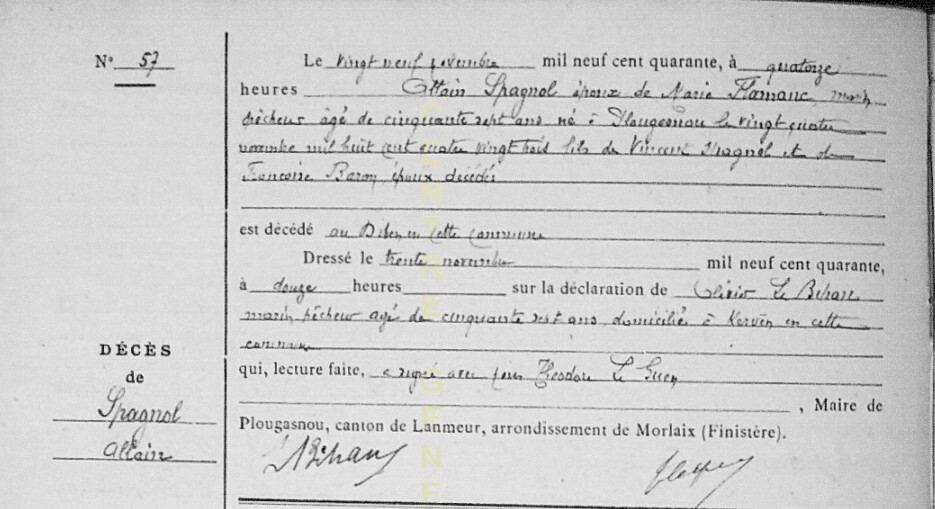 N° 57
Le vingt neuf novembre mil neuf cent quarante, à quatorze
heures Allain Spagnol époux de Marie Flamanc, marin
pêcheur âgé de cinquante sept ans né à Plougasnou le vingt quatre
novembre mil huit cent quatre vingt trois fils de Vincent Spagnol et de
Francoise Baron, époux décédés
est décédé au Diben en cette commune
Dressé le trente novembre mil neuf cent quarante,
à douze heures sur la déclaration de Olivier Le Bihan
marin pêcheur agé de cinquante sept ans, domicilié à Kervén en cette
commune
qui, lecture faite, a signé avec Nous Théodore Le Guen
, Maire de
Plougasnou, canton de Lanmeur, arrondissement de Morlaix (Finistère).
DÉCÈS
de
Spagnol
Allain
LBihan